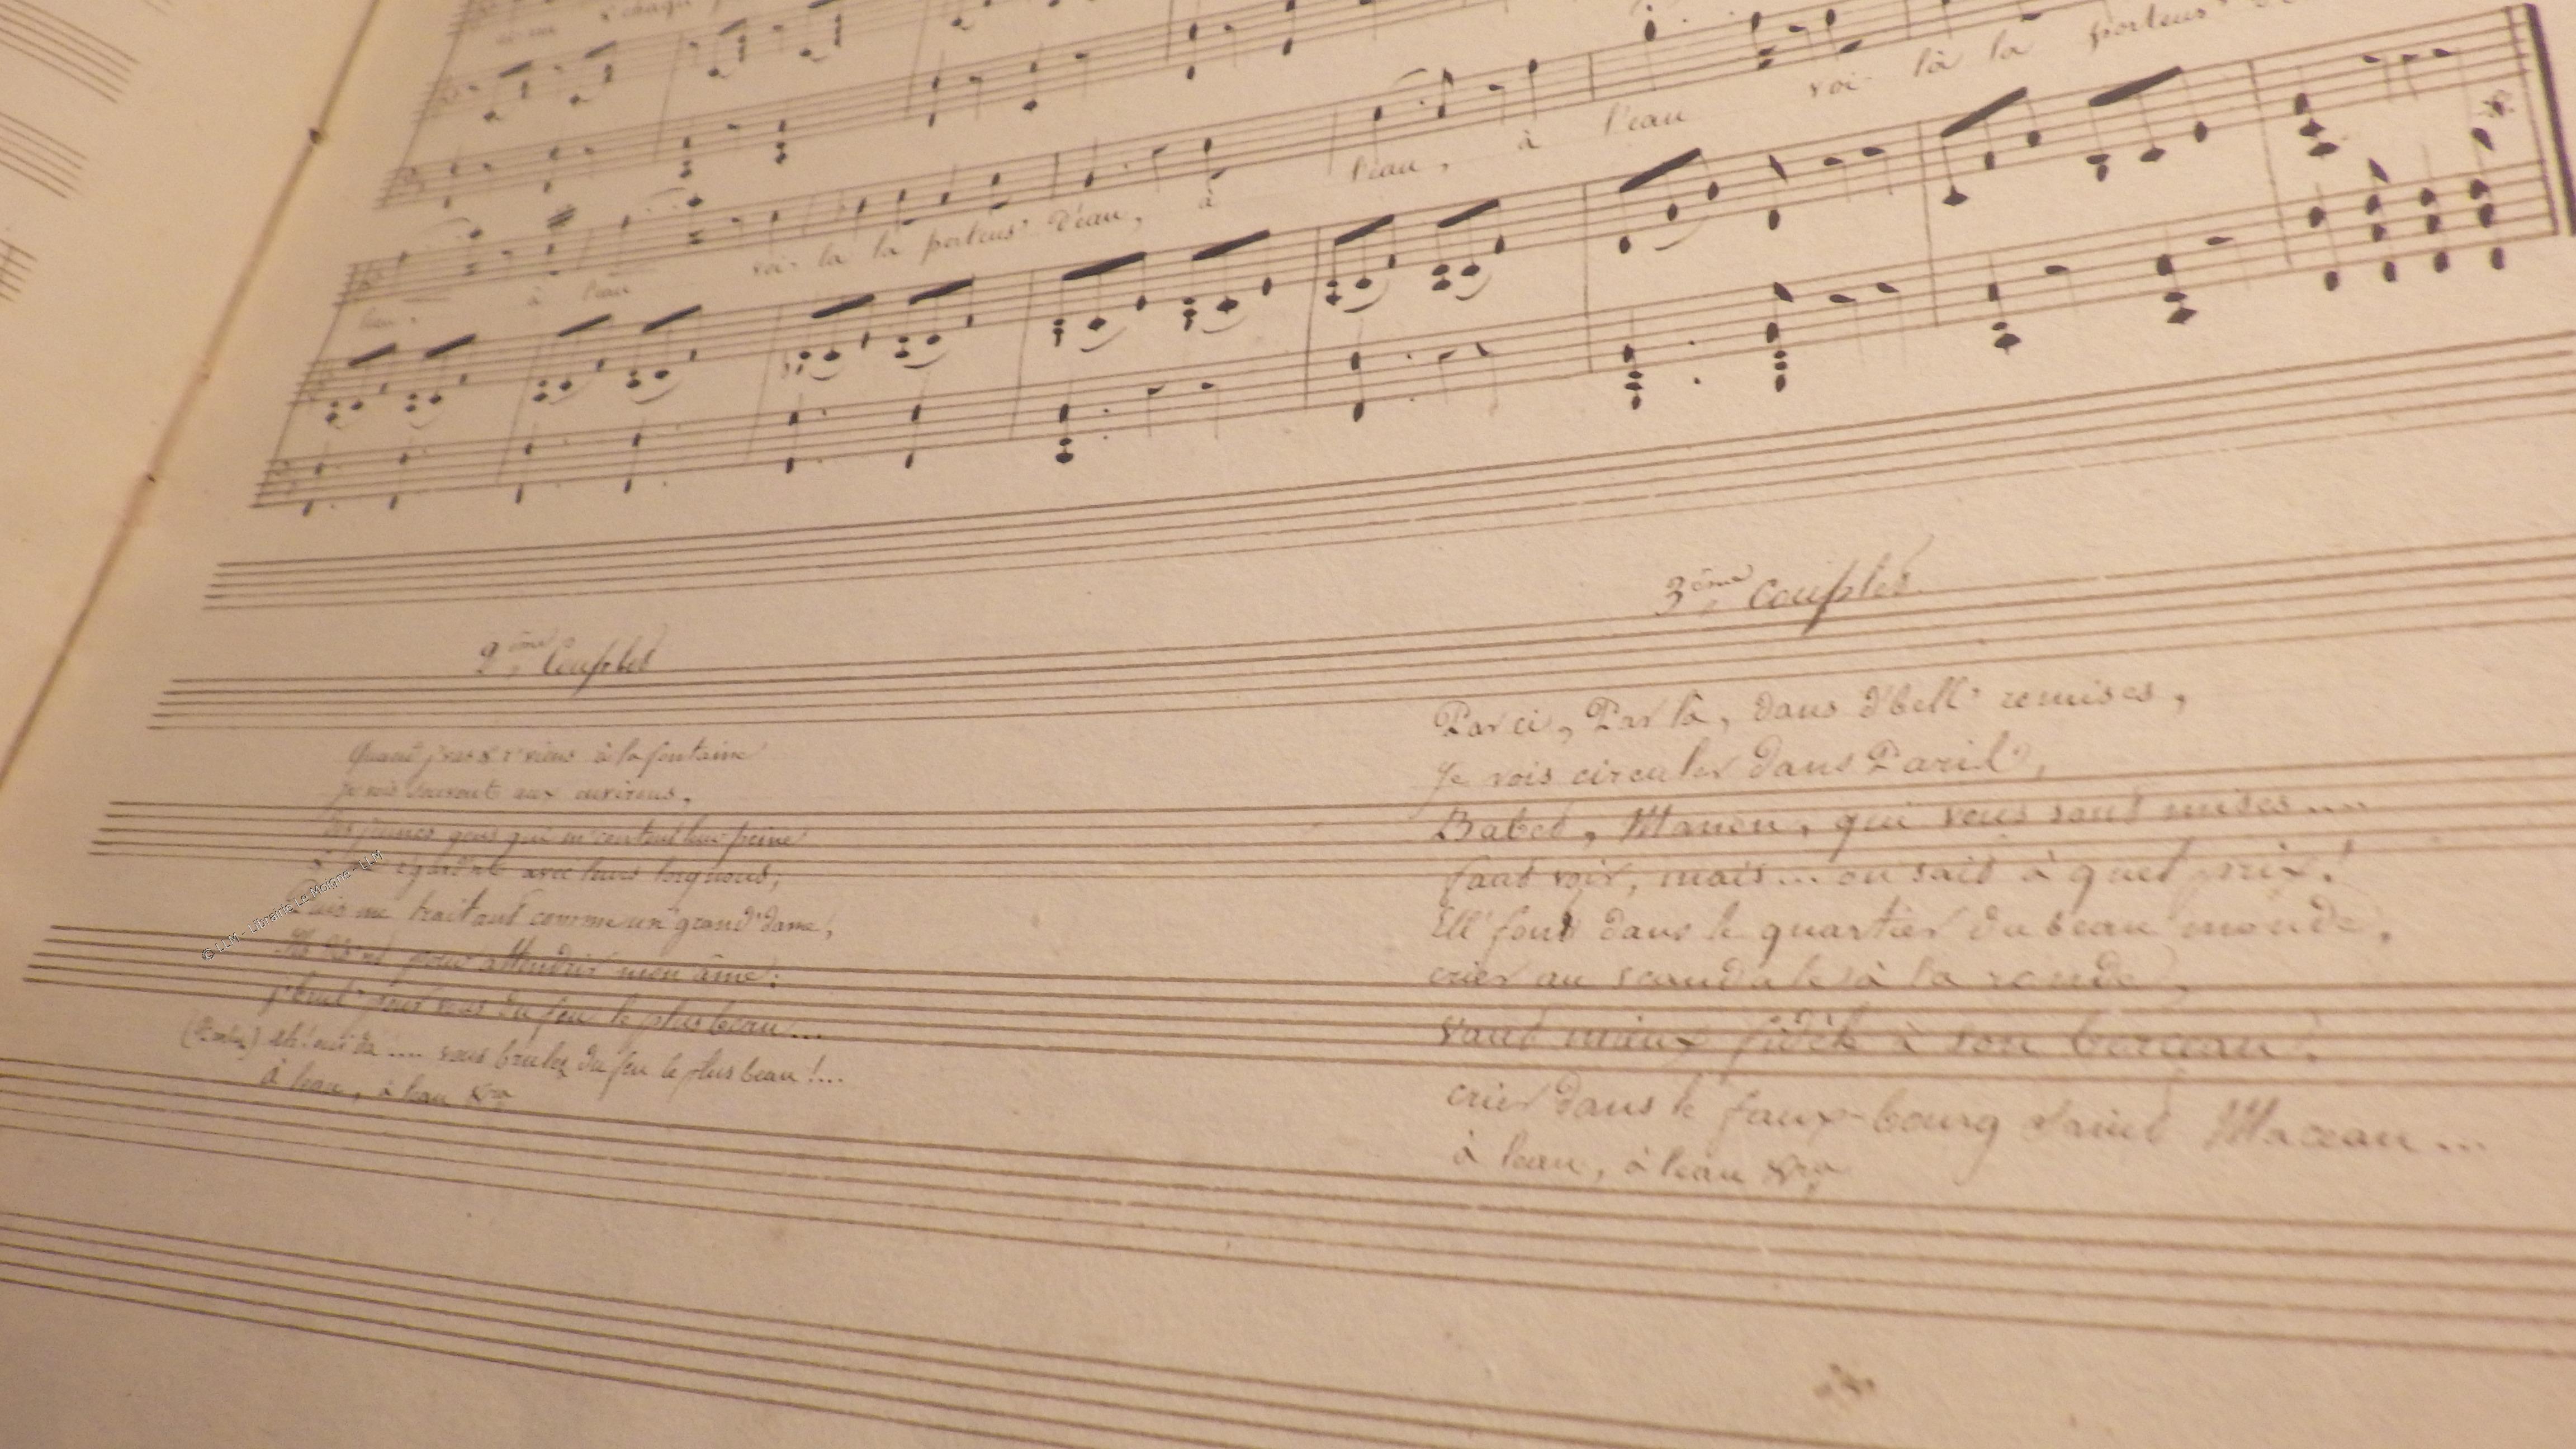 voi- là la porteus'
l'eau, à l'eau
à l'eau voi- là la porteus' d'eau, à
2ème Couplet
Quand j'vas & r'viens à la fontaine
Je vois souvent aux environs,
Des jeunes gens qui m'content leur peine
r'gard'nt avec leurs lorgnons;
Puis me traitant comme un' grand' dame,
pour attendrir mon âme:
j'brul' pour vous du feu le plus beau...
(Parlé) ah! oui da .... vous brulez du feu le plus beau!...
à l'eau, à l'eau &ra
3ème Couplet
Par ci, Par là, dans d'bell' remises,
Je vois circuler dans Paris,
Babet, Manon, qui vous sont mises....
faut voir, mais... on sait à quel prix!
Ell' font dans le quartier du beau monde,
crier au scandale à la ronde,
vaut mieux fidèle à son berceau,
crier dans le faux-bourg Saint Maceau...
à l'eau, à l'eau &ra
© LLM - Librairie Le Moigne - LLM